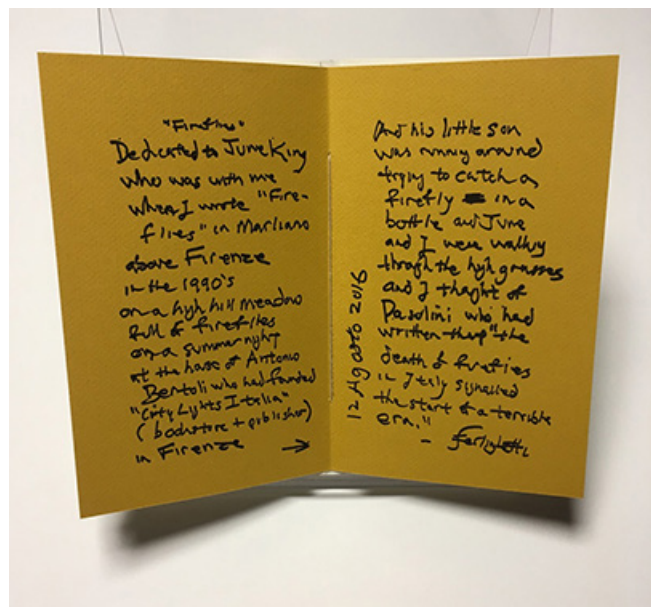 "Fireflies"
Dedicated to June King
who was with me
when I wrote "Fire-
flies" in Marliano
above Firenze
in the 1990's
on a high hill meadow
full of fireflies
on a summer night
at the house of Antonio
Bertoli who had founded
"City Lights Italia"
(bookstore + publisher)
in Firenze →
And his little son
was running around
trying to catch a
firefly in a
bottle and June
and I were walking
through the high grasses
and I thought of
Pasolini who had
written that "the
death of fireflies
in Italy signalled
the start of a terrible
era."
- Ferlinghetti
12 Agosto 2016